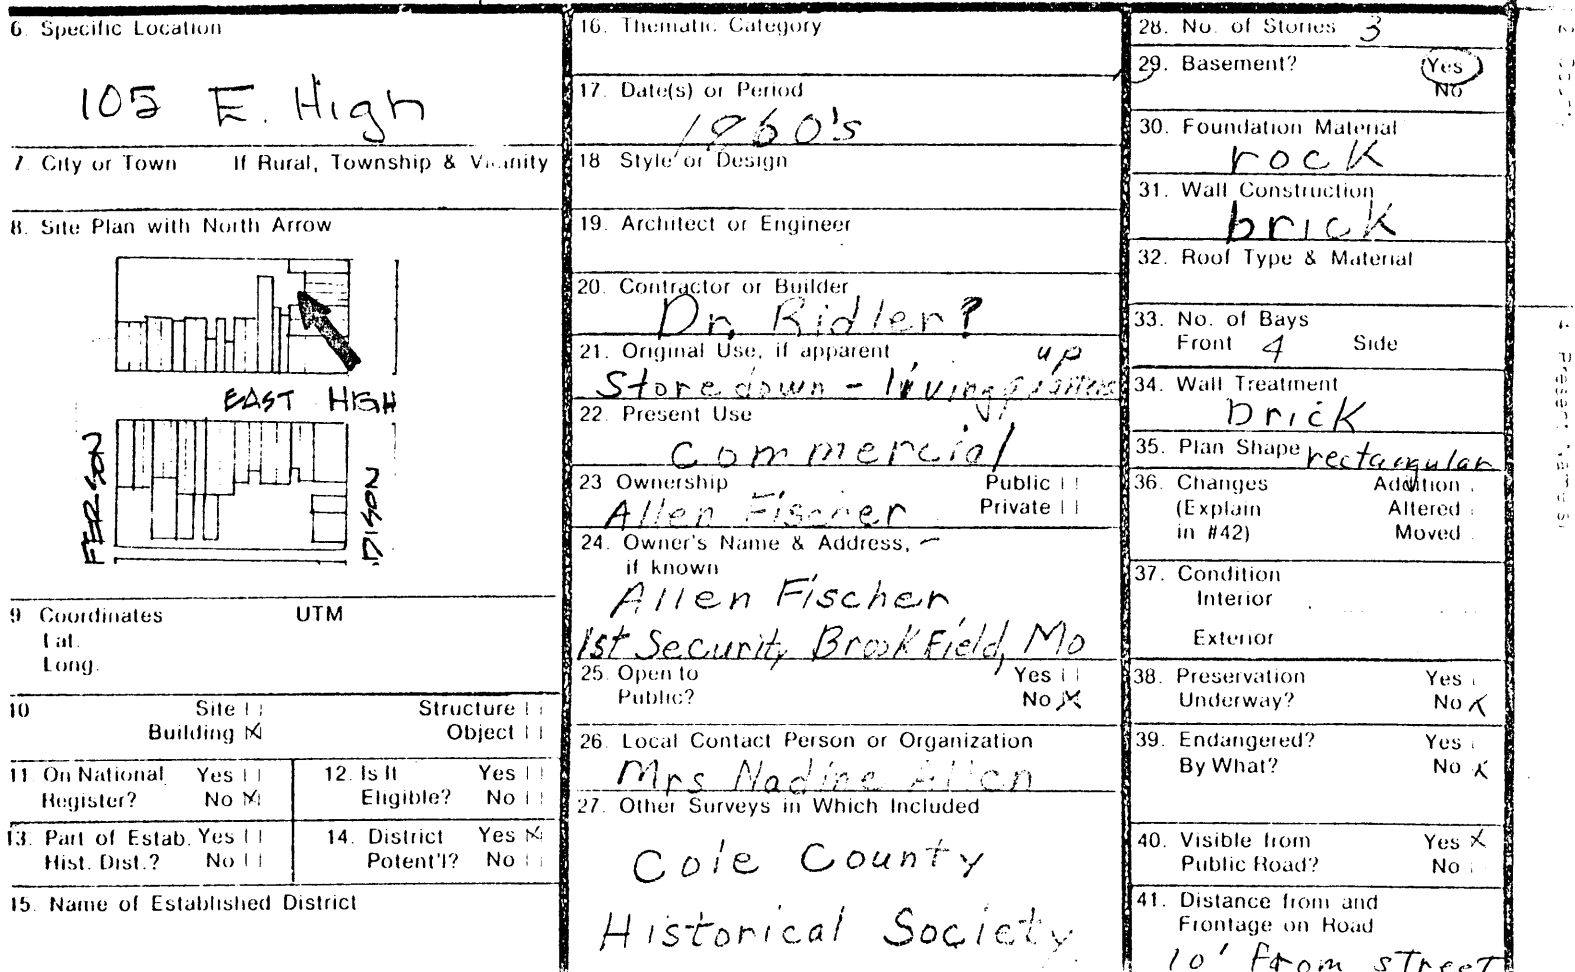 6. Specific Location
105 E. High
7. City or Town If Rural, Township & Vicinity
8. Site Plan with North Arrow
EAST HIGH
FERSON
DISON
9. Coordinates UTM
Lat.
Long.
10 Site [ ] Structure [ ]
Building [X] Object [ ]
11. On National Yes [ ]
Register? No [X]
12. Is It Yes [ ]
Eligible? No [ ]
13. Part of Estab. Yes [ ]
Hist. Dist.? No [ ]
14. District Yes [X]
Potent'l? No [ ]
15. Name of Established District
16. Thematic Category
17. Date(s) or Period
1860's
18 Style or Design
19. Architect or Engineer
20. Contractor or Builder
Dr. Ridler?
21. Original Use, if apparent up
Store down - living
22. Present Use
Commercial
23 Ownership Public [ ]
Allen Fischer Private [ ]
24. Owner's Name & Address,
if known
Allen Fischer
1st Security Brookfield, Mo
25. Open to Yes [ ]
Public? No [X]
26. Local Contact Person or Organization
Mrs Nadine Allen
27. Other Surveys in Which Included
Cole County
Historical Society
28. No. of Stories 3
29. Basement? Yes
No
30. Foundation Material
rock
31. Wall Construction
brick
32. Roof Type & Material
33. No. of Bays
Front 4 Side
34. Wall Treatment
brick
35. Plan Shape rectangular
36. Changes Addition
(Explain Altered
in #42) Moved
37. Condition
Interior
Exterior
38. Preservation Yes
Underway? No X
39. Endangered? Yes
By What? No X
40. Visible from Yes X
Public Road? No
41. Distance from and
Frontage on Road
10' from street
4 Present Name(s)